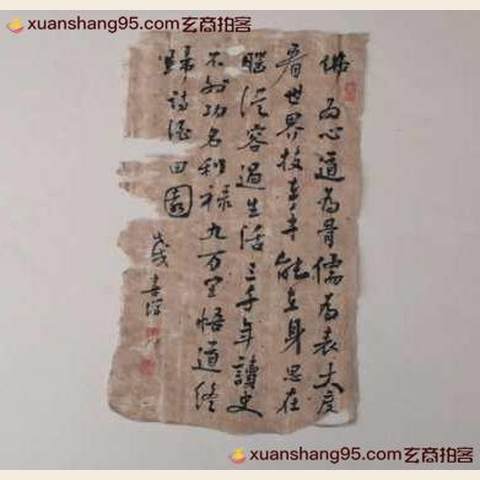 xuanshang95.com玄商拍客
佛为心道为骨儒为表大度
看世界技在手能在身思在
腦從容過生活三千年讀史
不外功名利祿九万里悟道终
歸詩酒田園
xuanshang95.com玄商拍客